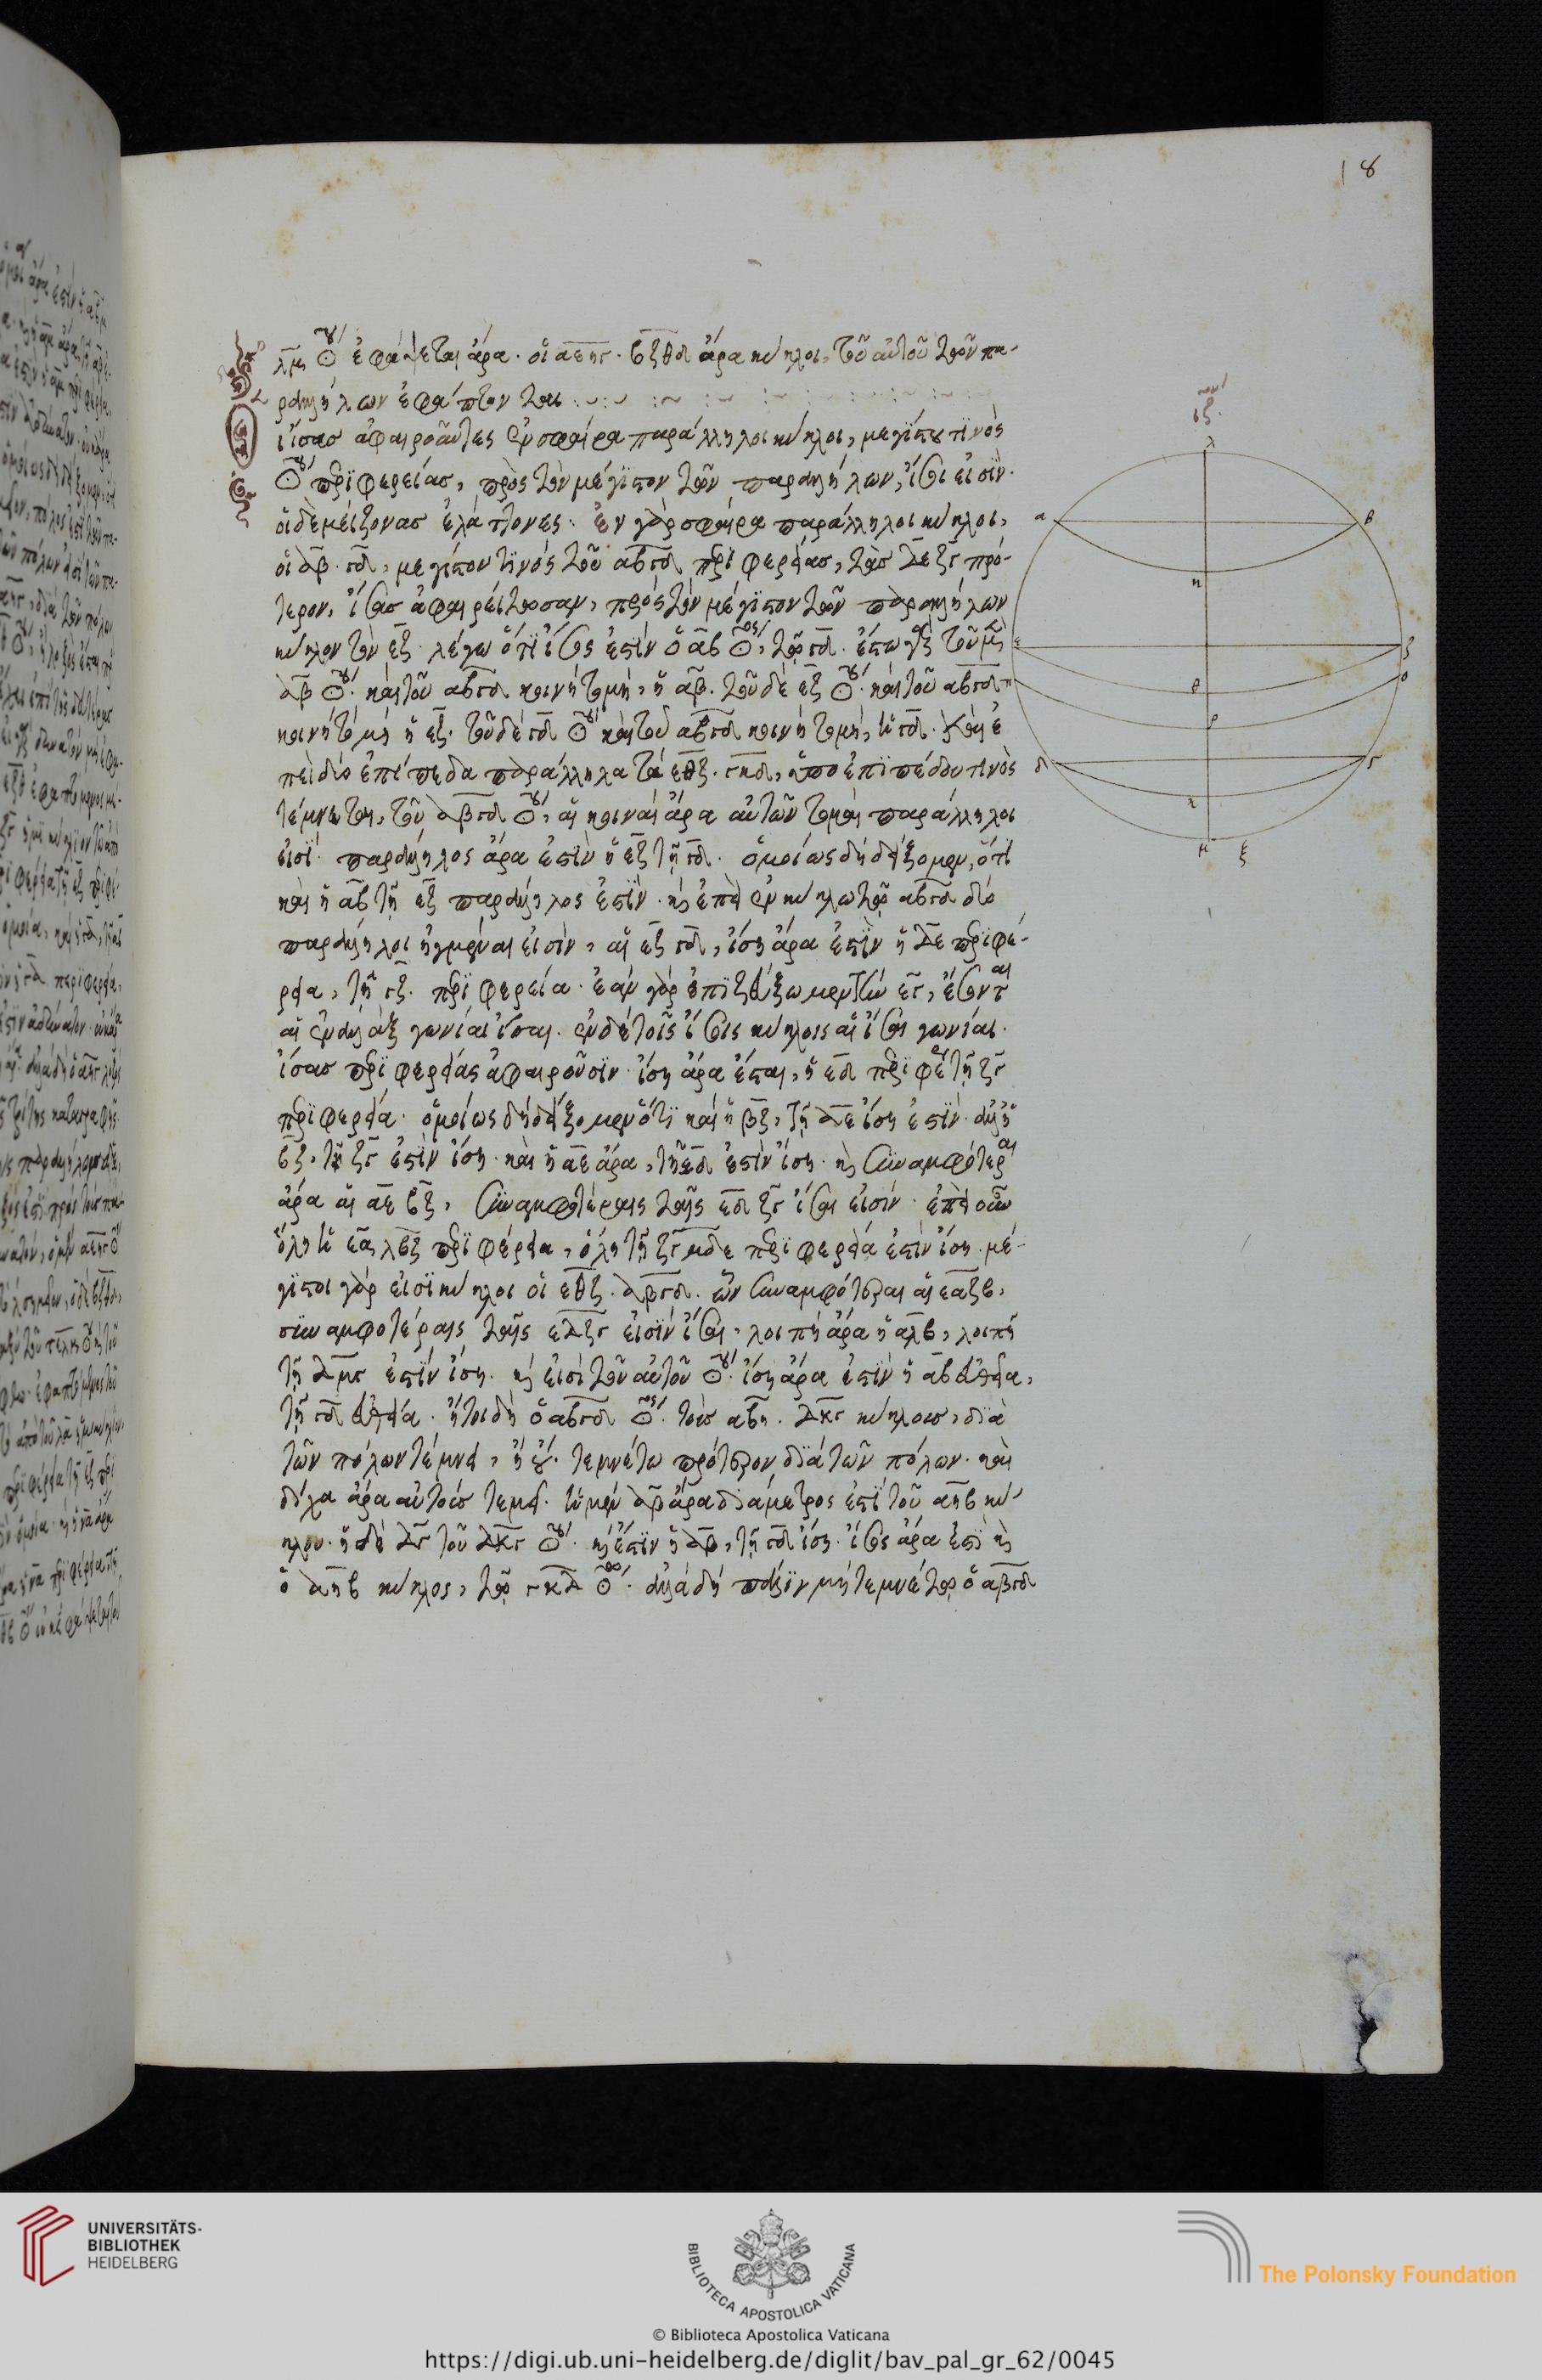 18
λ̅μ̅ ☉ου ἐφάψεται ἄρα· οἱ α̅ε̅η̅γ̅· β̅ζ̅θ̅δ̅ ἄρα κύκλοι, τοῦ αὐτοῦ τῶν πα-
ραλλήλων ἐφάπτονται
ἴσας ἀφαιροῦντες ἐν σφαίρα παράλληλοι κύκλοι, μεγίστου τινὸς
☉ου περιφερείας, πρὸς τὸν μέγιστον τῶν παραλλήλων, ἴσοι εἰσίν·
οἱ δὲ μείζονας ἐλάττονες· ἐν γὰρ σφαίρα παράλληλοι κύκλοι,
οἱ α̅β̅· γ̅δ̅, μεγίστου τινός τοῦ α̅β̅γ̅δ̅ περιφερείας, τὰς δ̅ε̅ ζ̅γ̅ πρό-
τερον, ἴσας ἀφαιρείτωσαν, πρὸς τὸν μέγιστον τῶν παραλλήλων
κύκλον τὸν ε̅ζ̅· λέγω ὅτι ἴσος ἐστίν ὁ α̅β̅ ☉ος, τῷ γ̅δ̅· ἔστω γὰρ τοῦ μὲν
α̅β̅ ☉ου· καὶ τοῦ α̅β̅γ̅δ̅ κοινὴ τομή, ἡ α̅β̅· τοῦ δὲ ε̅ζ̅ ☉ου· καὶ τοῦ α̅β̅γ̅δ̅
κοινὴ τομή ἡ ε̅ζ̅· τοῦ δὲ γ̅δ̅ ☉ου καὶ τοῦ α̅β̅γ̅δ̅ κοινὴ τομή, ἡ γ̅δ̅· καὶ ἐ
πεὶ δύο ἐπίπεδα παράλληλα τὰ ε̅θ̅ζ̅· γ̅κ̅δ̅, ὑπὸ ἐπιπέδου τινὸς
τέμνεται, τοῦ α̅β̅γ̅δ̅ ☉ου, αἱ κοιναὶ ἄρα αὐτῶν τομαὶ παράλληλοι
εἰσί· παράλληλος ἄρα ἐστὶν ἡ ε̅ζ̅ τῇ γ̅δ̅· ὁμοίως δὴ δείξομεν, ὅτι
καὶ ἡ α̅β̅ τῇ ε̅ζ̅ παράλληλος ἐστὶν· καὶ ἐπεὶ ἐν κύκλω τῷ α̅β̅γ̅δ̅ δύο
παράλληλοι ἠγμέναι εἰσὶν, αἱ ε̅ζ̅ γ̅δ̅, ἴση ἄρα ἐστὶν ἡ δ̅ε̅ περιφέ-
ρεια, τῇ γ̅ζ̅· περιφερεία· ἐὰν γὰρ ἐπιζεύξωμεν τὴν ε̅γ̅, ἔσονται
αἱ ἐναλλὰξ γωνίαι ἴσαι· ἐν δὲ τοῖς ἴσοις κύκλοις αἱ ἴσαι γωνίαι·
ἴσας περιφερείας ἀφαιροῦσιν· ἴση ἄρα ἔσται, ἡ ε̅δ̅ περιφέ τῇ ζ̅γ̅
περιφερεία· ὁμοίως δὴ δείξομεν ὅτι καὶ ἡ β̅ζ̅, τῇ α̅ε̅ ἴση ἐστὶν· ἀλλ' ἡ
β̅ζ̅, τῇ ζ̅γ̅ ἐστὶν ἴση· καὶ ἡ α̅ε̅ ἄρα, τῇ ε̅δ̅ ἐστὶν ἴση· καὶ συναμφότεραι
ἄρα αἱ α̅ε̅ β̅ζ̅, συναμφοτέραις ταῖς ε̅δ̅ ζ̅γ̅ ἴσαι εἰσίν· ἐπεὶ οὖν
ὅλη ἡ ε̅α̅λ̅β̅ζ̅ περιφέρεια, ὅλη τῇ ζ̅γ̅μ̅δ̅ε̅ περιφερεία ἐστὶν ἴση· μέ-
γιστοι γάρ εἰσι κύκλοι οἱ ε̅θ̅ζ̅· α̅β̅γ̅δ̅· ὧν συναμφότεραι αἱ ε̅α̅ζ̅β̅,
συναμφοτέραις ταῖς ε̅δ̅ζ̅γ̅ εἰσὶν ἴσαι, λοιπὴ ἄρα ἡ α̅λ̅β̅, λοιπῇ
τῇ δ̅μ̅γ̅ ἐστὶν ἴση· καὶ εἰσὶ τοῦ αὐτοῦ ☉ου· ἴση ἄρα ἐστὶν ἡ α̅β̅ εὐθεῖα,
τῇ γ̅δ̅ εὐθεία· ἤτοι δὴ ὁ α̅β̅γ̅δ̅ ☉ος· τοὺς α̅β̅η̅· δ̅κ̅γ̅ κύκλους, διὰ
τῶν πόλων τέμνει, ἢ οὔ· τεμνέτω πρότερον διὰ τῶν πόλων· καὶ
δίχα ἄρα αὐτοὺς τεμεῖ· ἡ μὲν α̅β̅ ἄρα διάμετρος ἐστὶ τοῦ α̅η̅β̅ κύ-
κλου· ἡ δὲ δ̅γ̅ τοῦ δ̅κ̅γ̅ ☉ου· καὶ ἔστιν ἡ α̅β̅, τῇ γ̅δ̅ ἴση· ἴσος ἄρα ἐστὶ καὶ
ὁ α̅η̅β̅ κύκλος, τῷ γ̅κ̅δ̅ ☉ω· ἀλλὰ δὴ πάλιν μὴ τεμνέτω ὁ α̅β̅γ̅δ̅
λ
α β
η
ε ζ
θ
π ο
ρ
δ γ
κ
μ ξ
UNIVERSITÄTS-
BIBLIOTHEK
HEIDELBERG
BIBLIOTECA APOSTOLICA VATICANA
The Polonsky Foundation
© Biblioteca Apostolica Vaticana
https://digi.ub.uni-heidelberg.de/diglit/bav_pal_gr_62/0045